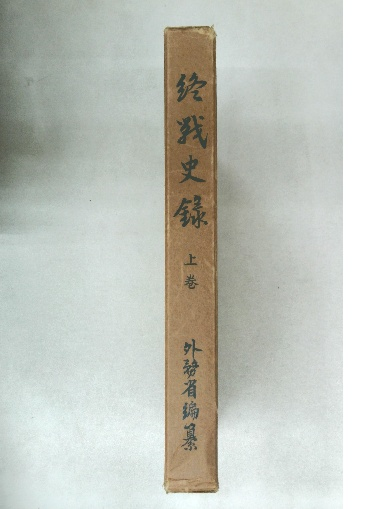 終戦史録
上巻
外務省編纂